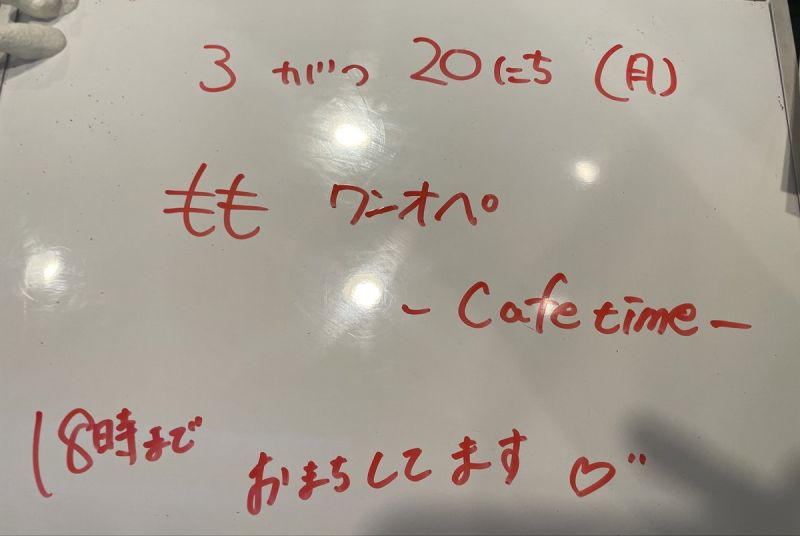 3がつ 20にち (月)
もも ワンオペ
- Cafe time -
18時まで おまちしてます♡"